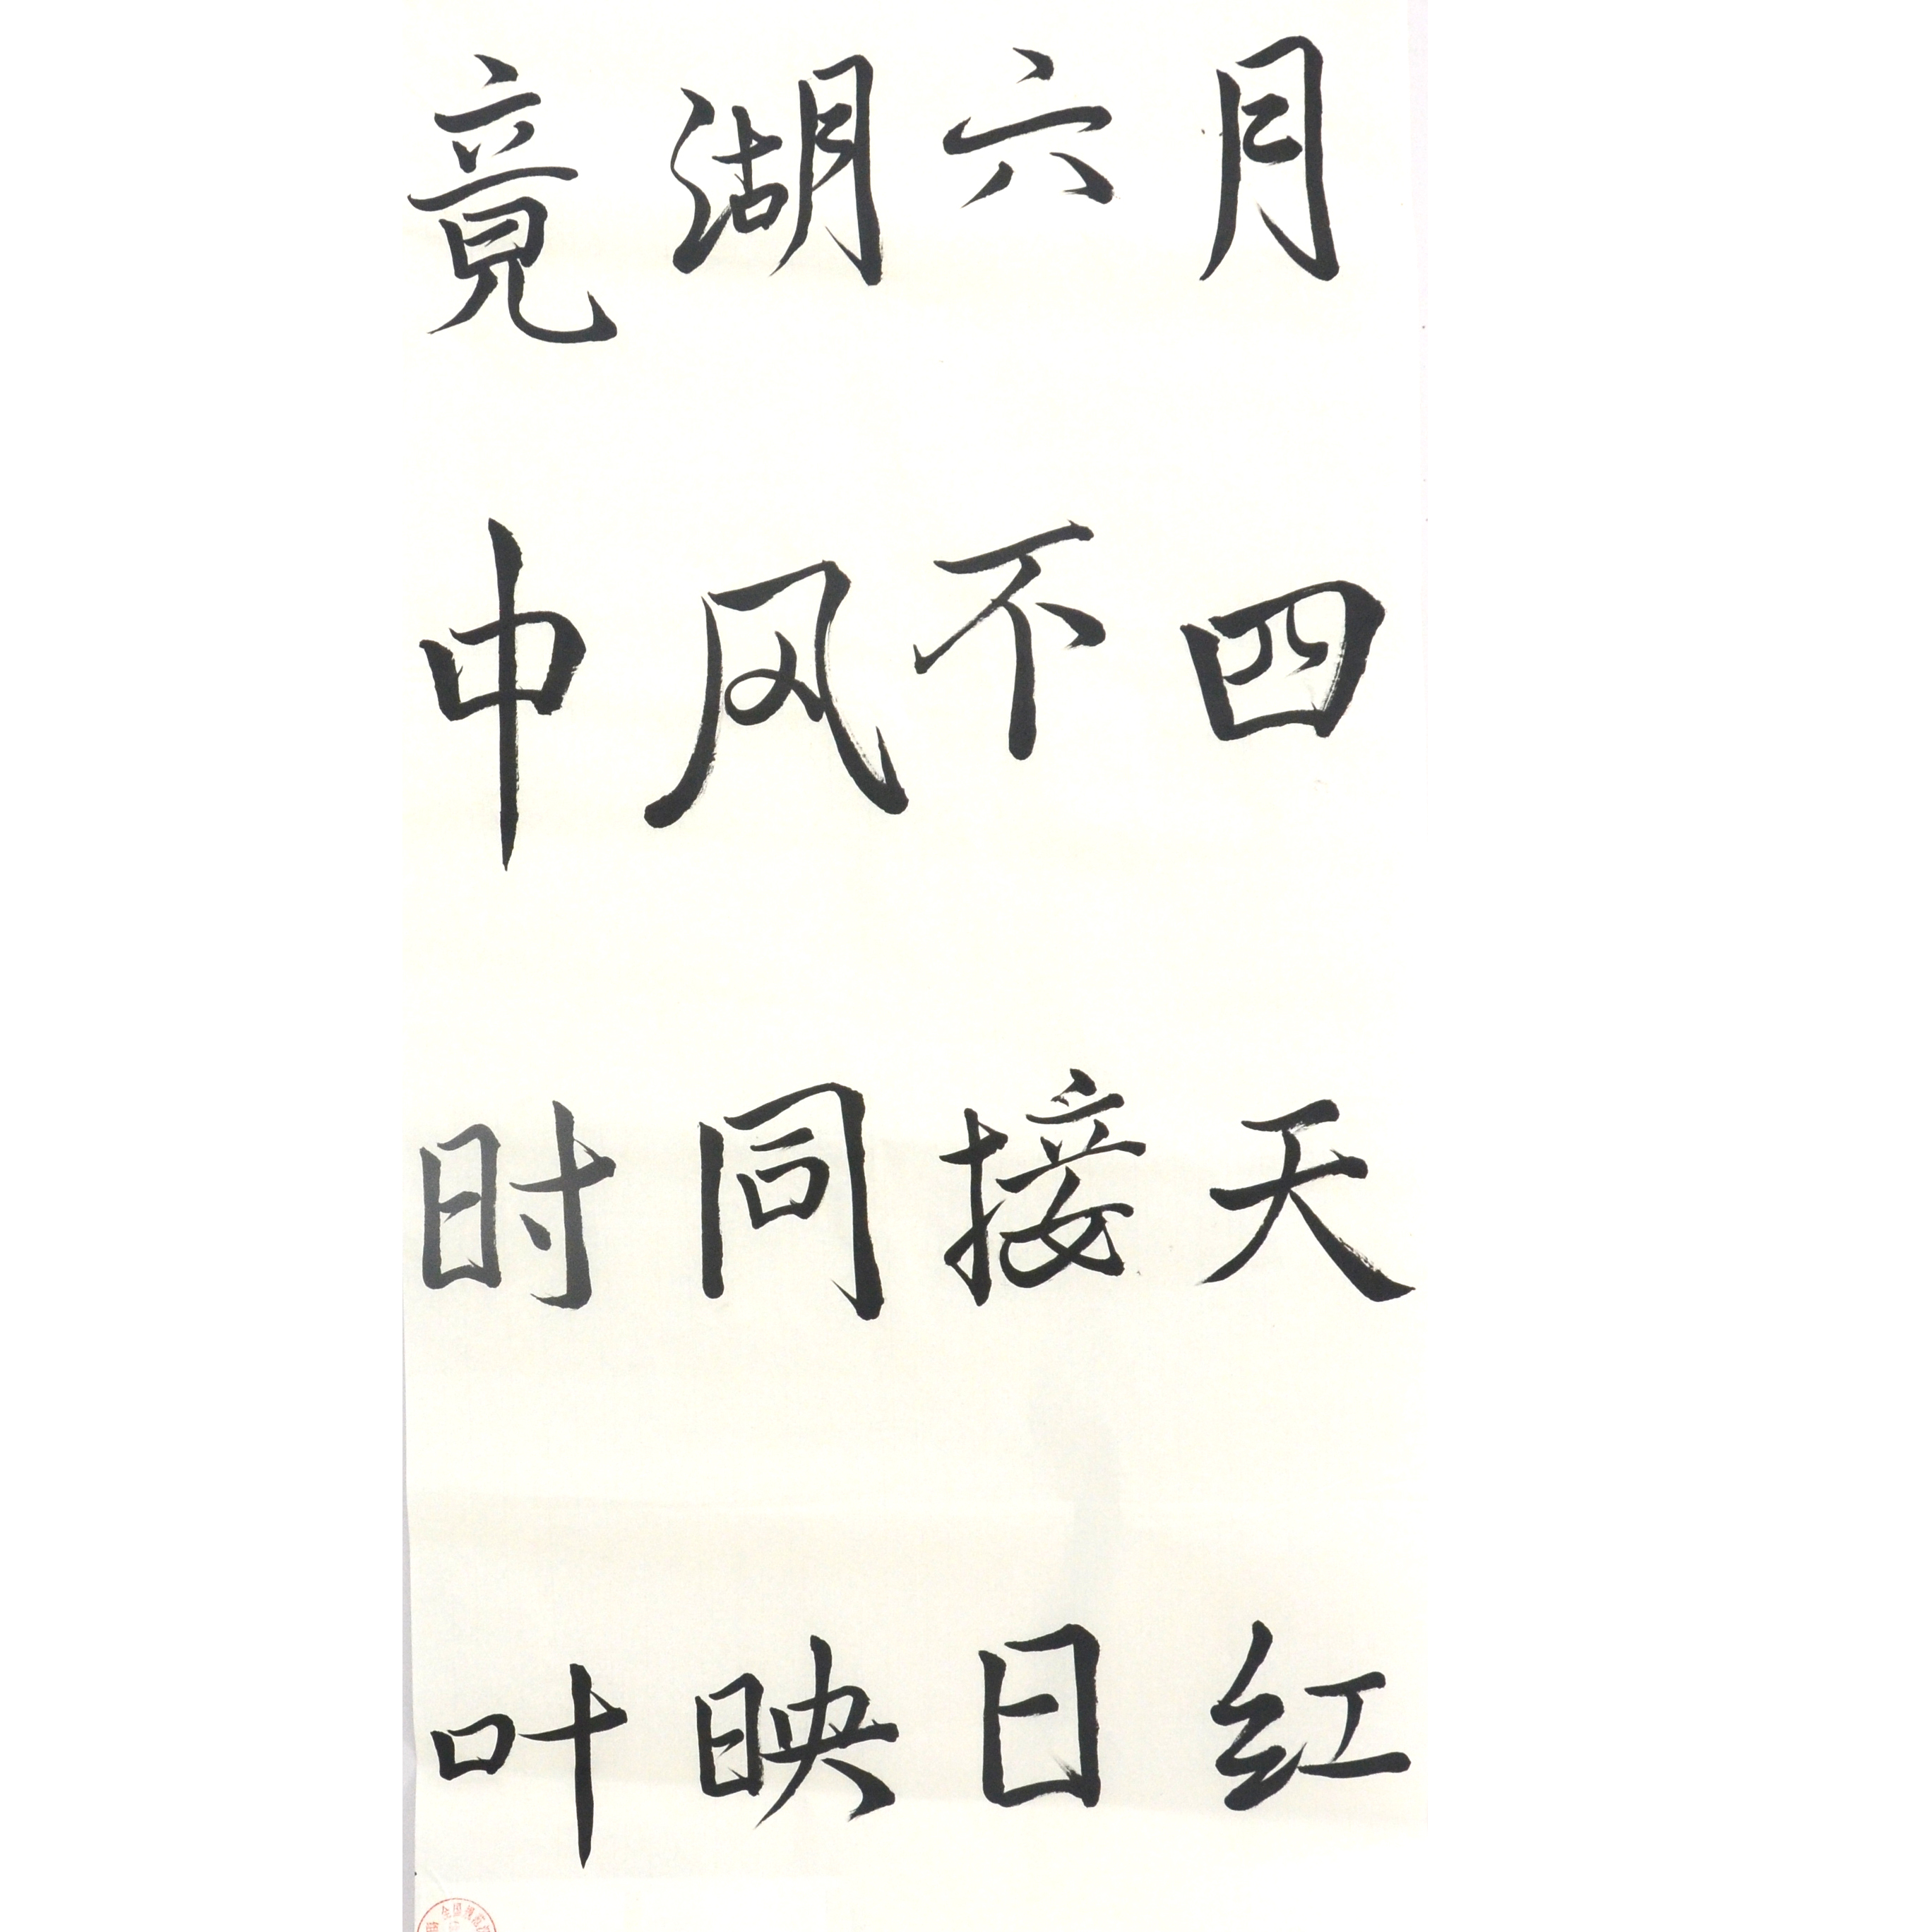 竟湖六月
中风不四
时同接天
叶映日红